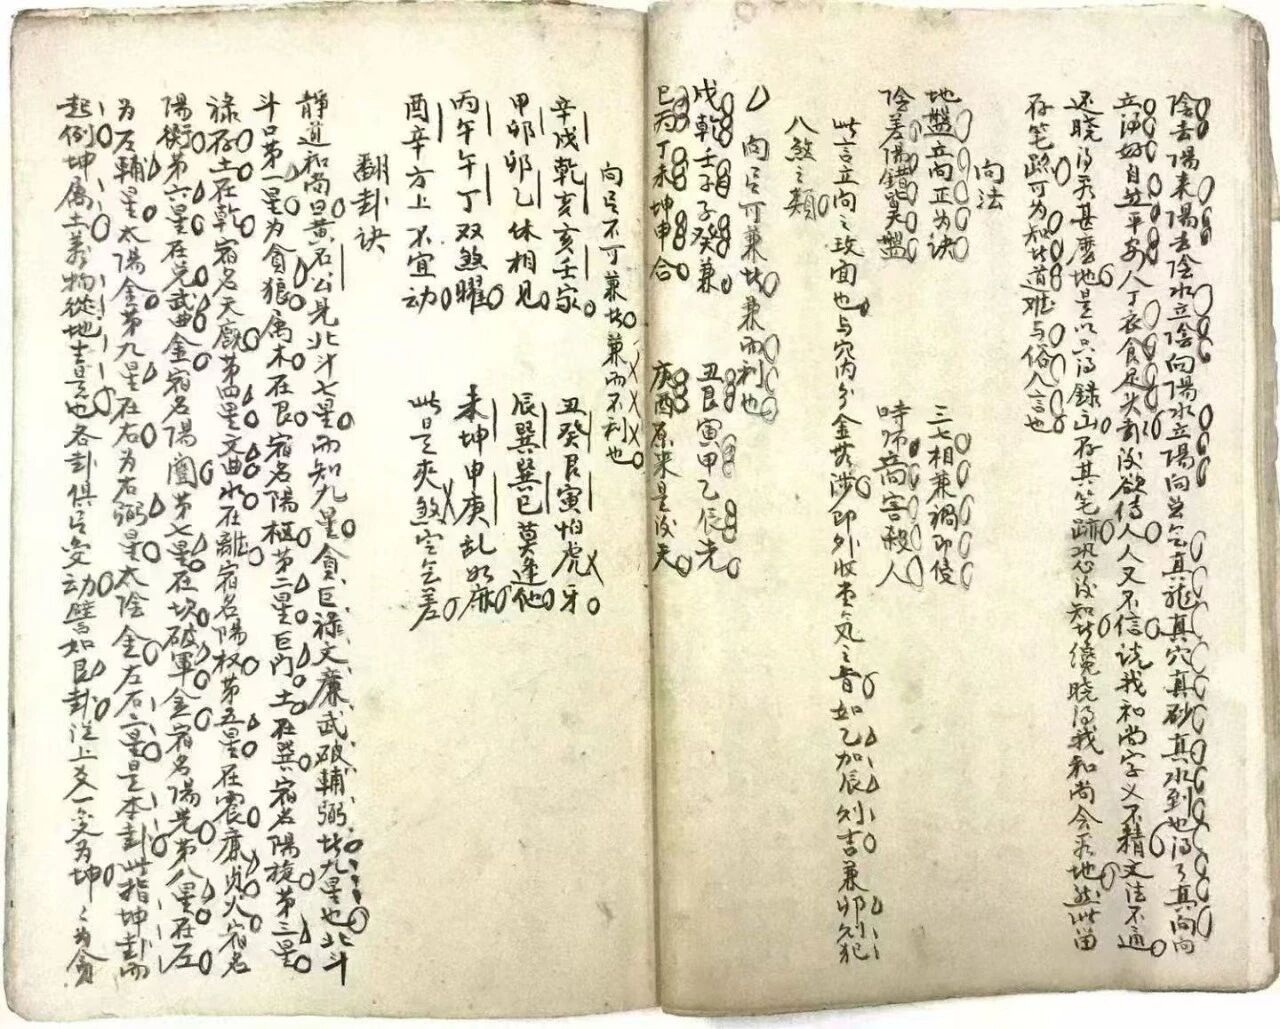 陰去陽来陽去陰水立陰向陽水立陽向並乞真龍真穴真砂真水到也得了真向向
立得好自然平安人丁衣食足矣卦没欲傳人人又不信说我和尚字义不精文法不通
还晓得看甚麽地是以只得録山存其笔跡恐没知此纔晓得我和尚会看地然此笛
存笔跡可为知此道难与俗人言也
向法
地盤立向正为诀 三七相兼謂即侵
陰差陽錯莫盤 時师啇害殺人
此言立向之玫面也与穴内分金若涉即外收查気之音如乙加辰则吉兼卯则犯
八煞之類
向呂可兼此兼而利也
戌乾壬子子癸兼 丑艮寅甲乙辰先
巳丙丁未坤申合 庚酉原来是没夫
向呂不可兼此兼而不利也
辛戌乾亥亥壬家 丑癸艮寅怕虎牙
甲卯卯乙休相見 辰巽巽巳莫逢他
丙午午丁双煞曜 未坤申庚乱如麻
酉辛方上不宜动 此是夾煞空乞差
翻卦诀
靜道和尚曰黄石公見北斗七星而知九星貪巨禄文廉武破輔弼此九星也北斗
斗口第一星为貪狼属木在艮宿名陽樞第二星巨门土在巽宿名陽旋第三星
禄存土在乾宿名天廐第四星文曲水在離宿名陽权第五星在震廉貞火宿名
陽衡第六星在兑武曲金宿名陽闓第七星在坎破軍金宿名陽先第八星在左
为左輔星太陽金第九星在右为右弼星太陰金左右二星是本卦此指坤卦而
起例坤属土萬物從地生是也各卦俱呂变动譬如艮卦從上爻一变为坤〻为貪